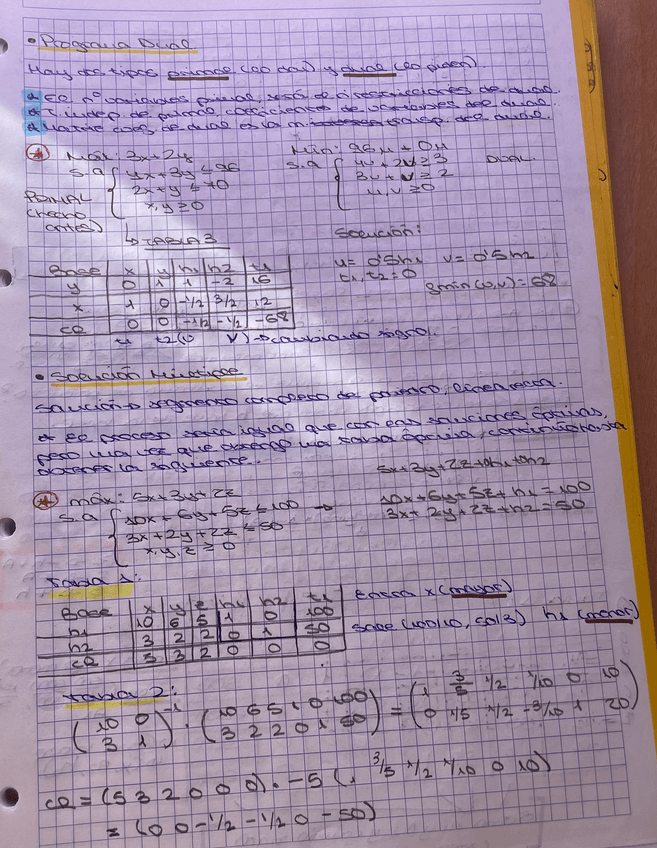 • Programa Dual
Hay dos tipos primal (lo dan) y dual (lo piden).
* El nº variables primal, será de restricciones de dual.
* T. indep de primal, coeficientes de variables del dual.
* Matriz coef. de dual es la transp. del dual.
* Máx: 3x+2y
s.a { 4x+3y ≤ 96
2x+y ≤ 40
x,y ≥ 0
PRIMAL (hecho antes)
Min: 96u + 40v
s.a { 4u + 2v ≥ 3
3u + v ≥ 2
u,v ≥ 0
DUAL
↳ TABLA 3
Base x y h1 h2 t1
y 0 1 1 -2 16
x 1 0 -1/2 3/2 12
CR 0 0 -1/2 -1/2 -68
t1 t2 (u v) → cambiando signo.
Solución:
u = 0'5 h1 v = 0'5 h2
t1, t2 = 0
g min (u,v) = 68
• Solución Múltiple
Solución → segmento completo de puntos, línea recta.
* El proceso sería igual que con las soluciones óptimas,
pero una vez que obtengo una tabla óptima, continuo para
obtener la siguiente.
* máx: 5x+3y+2z
s.a { 10x+6y+5z ≤ 100 →
3x+2y+2z ≤ 50
x,y,z ≥ 0
5x+3y+2z+0h1+0h2
10x+6y+5z+h1 = 100
3x+2y+2z+h2 = 50
Tabla 1:
Base x y z h1 h2 t1
h1 10 6 5 1 0 100
h2 3 2 2 0 1 50
CR 5 3 2 0 0 0
Entra x (mayor)
Sale (100/10, 50/3) h1 (menor)
Tabla 2:
(10 0
3 1)⁻¹ · (10 6 5 1 0 100
3 2 2 0 1 50) = (1 3/5 1/2 1/10 0 10
0 1/5 1/2 -3/10 1 20)
CR = (5 3 2 0 0 0) · -5 (1 3/5 1/2 1/10 0 10)
= (0 0 -1/2 -1/2 0 -50)